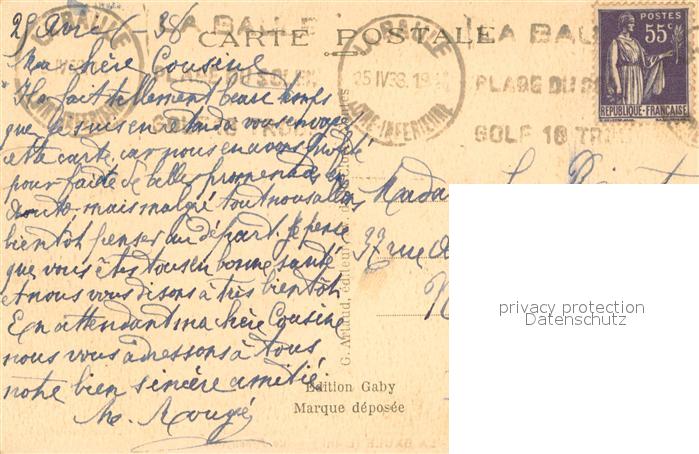 25 Avril - 38
LA BAULE
CARTE POSTALE
LA BAULE
25 IV 38
LOIRE-INFERIEURE
LA BAULE
PLAGE DU SOLEIL
GOLF 18 TROUS
POSTES
55c
REPUBLIQUE-FRANÇAISE
Ma chère Cousine
Il fait tellement beau temps
que je suis en retard vous envoyer
cette carte, car nous en avons profité
pour faire de belles promenades en
auto mais malgré tout nous allons
bientôt penser au départ. Je pense
que vous êtes tous en bonne santé
et nous vous disons à très bientôt
En attendant ma chère Cousine
nous vous adressons à tous
notre bien sincère amitié.
M. Rougé
Madame
37 rue de
G. Artaud, Editeur
Edition Gaby
Marque déposée
privacy protection
Datenschutz